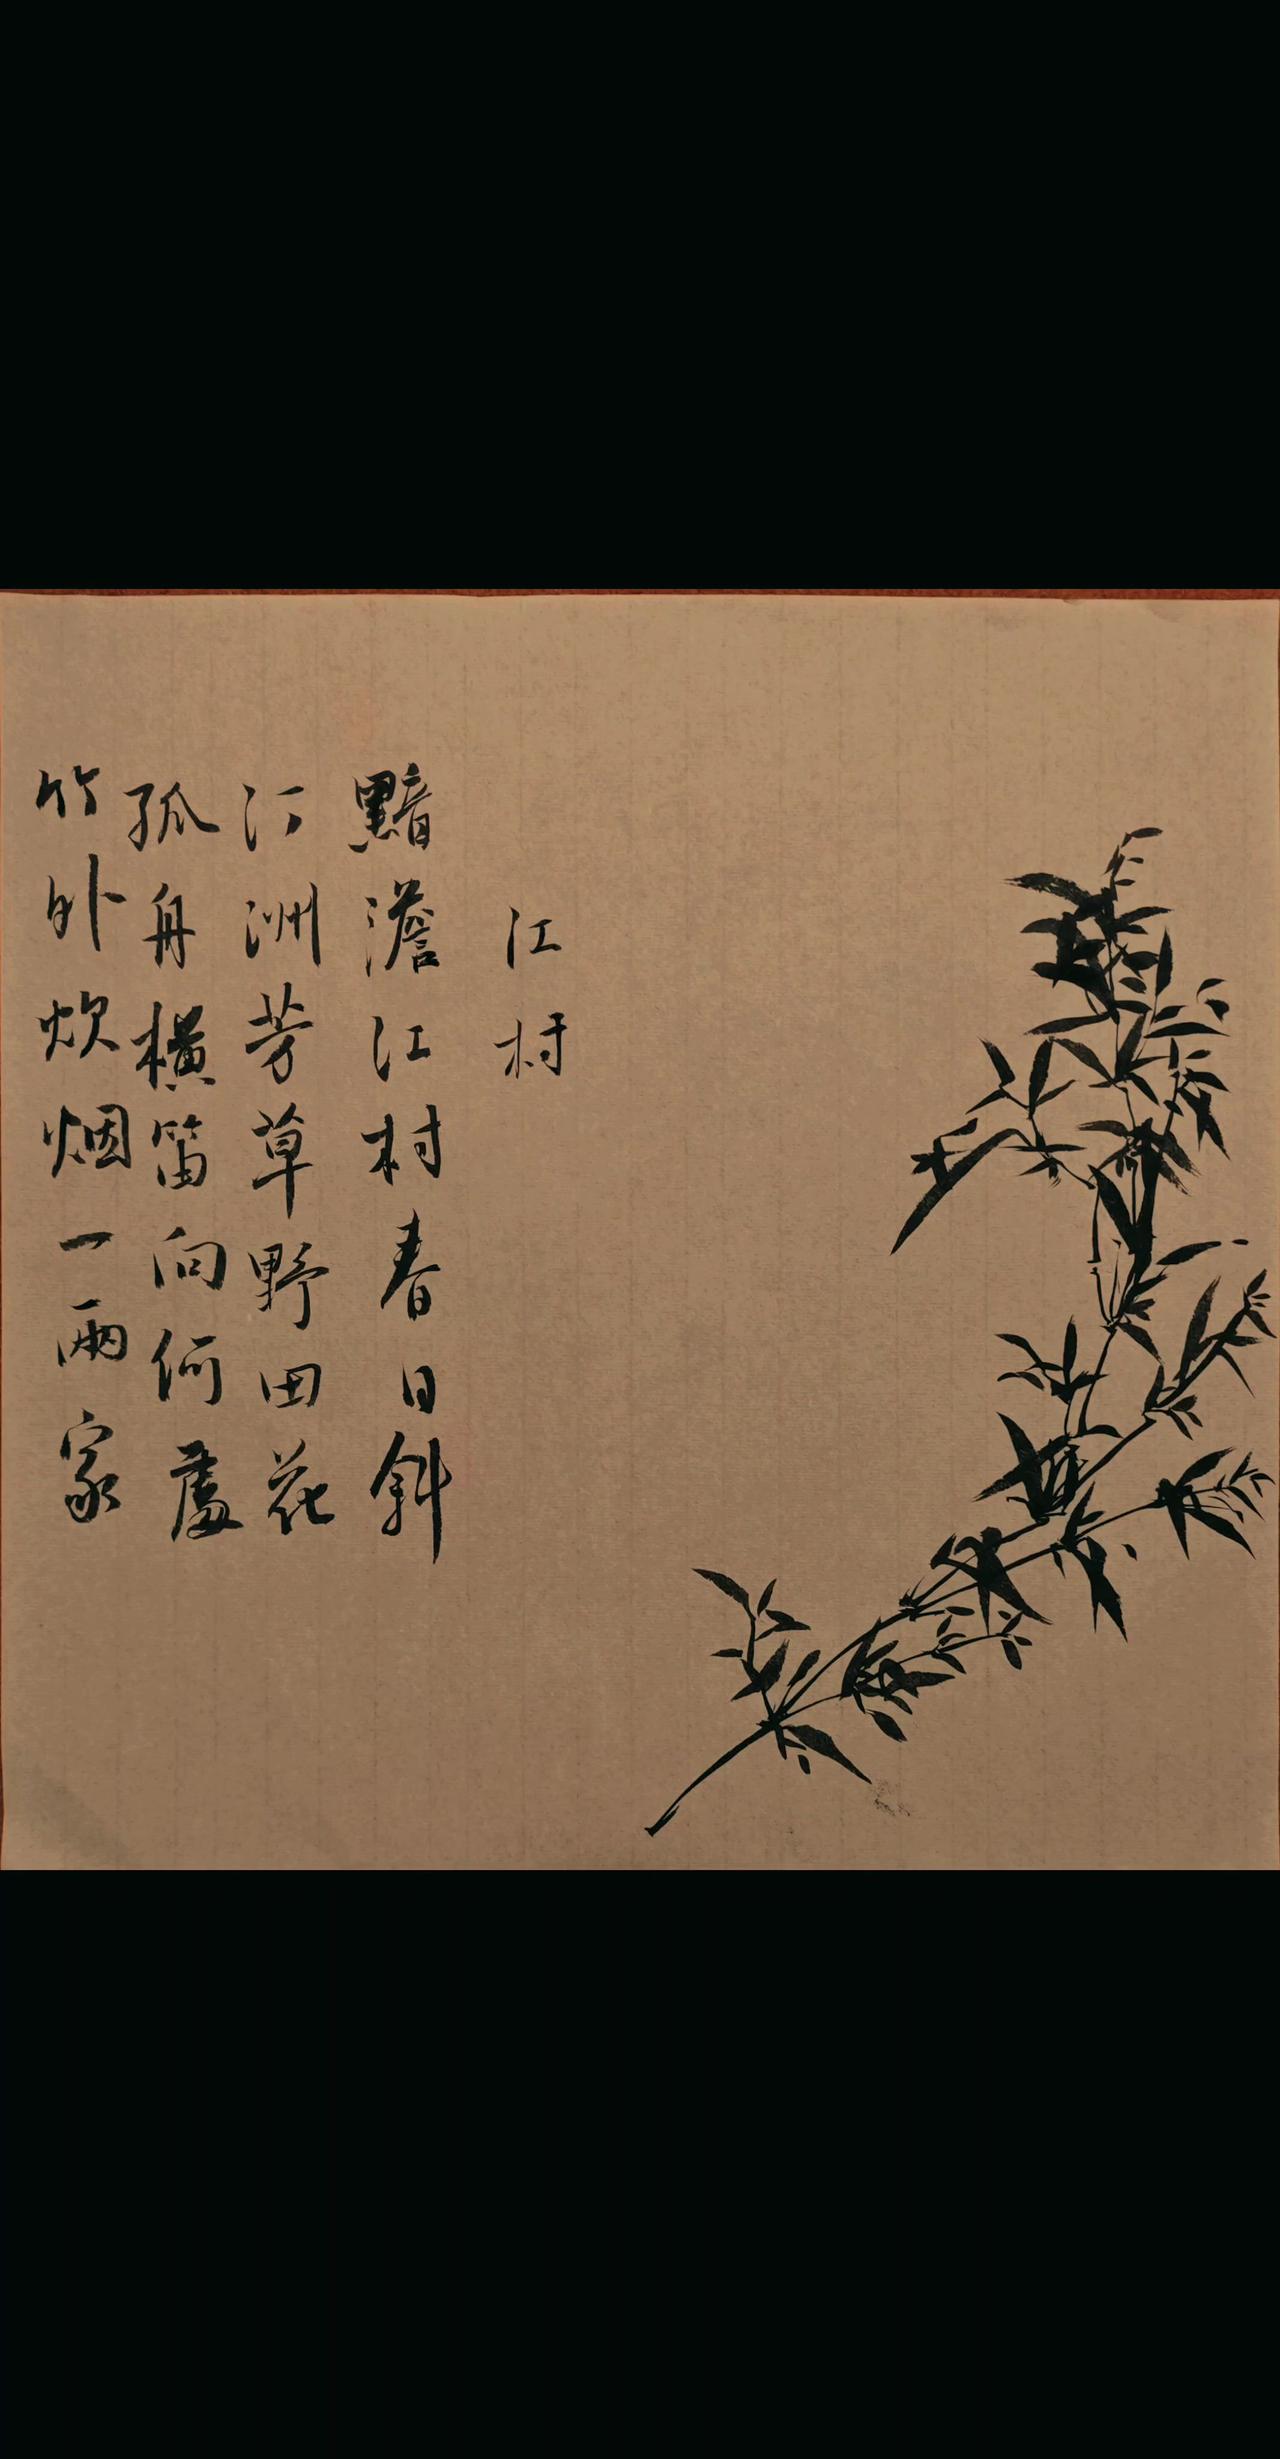 江村
黯澹江村春日斜
汀洲芳草野田花
孤舟橫笛向何處
竹外炊烟一兩家